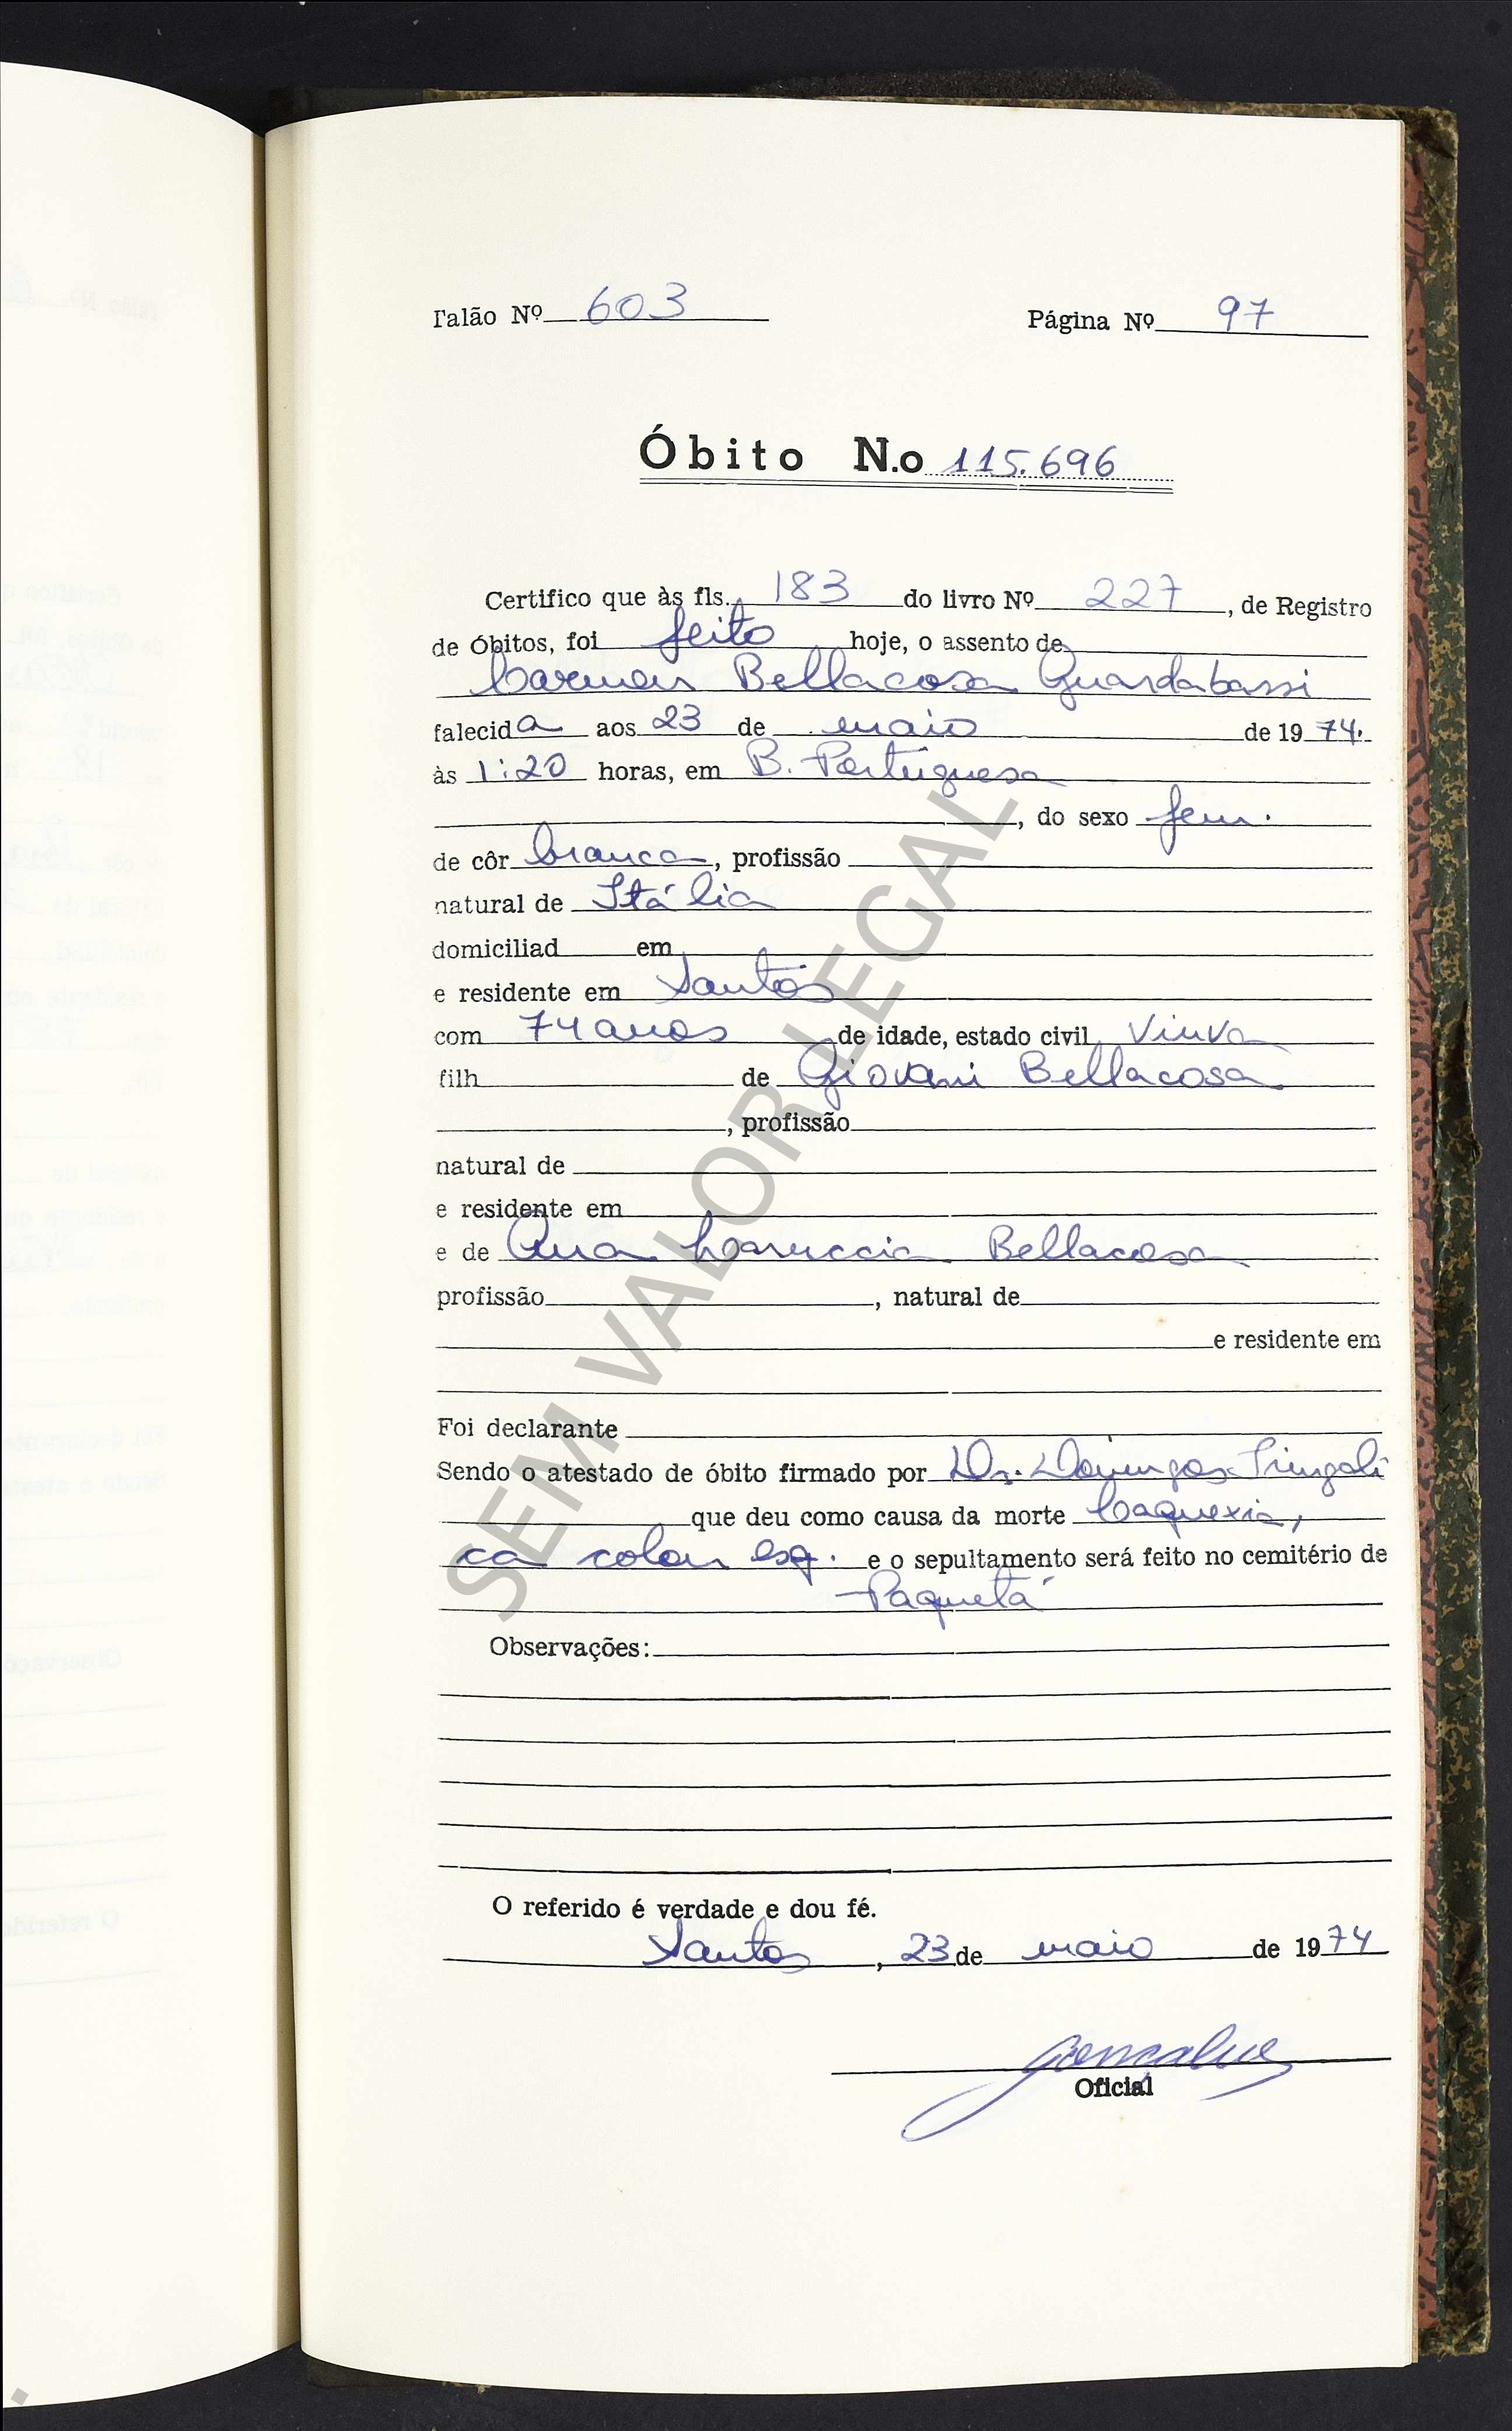 Talão Nº 603 Página Nº 97
Óbito N.o 115.696
Certifico que às fls. 183 do livro Nº 227, de Registro
de Óbitos, foi feito hoje, o assento de
Carmen Bellacosa Guardabassi
falecida aos 23 de maio de 1974.
às 1:20 horas, em B. Portuguesa
, do sexo fem.
de côr branca, profissão
natural de Itália
domiciliad em
e residente em Santos
com 74 anos de idade, estado civil Viuva
filh de Giovani Bellacosa
, profissão
natural de
e residente em
e de Ana Bellacosa
profissão , natural de
e residente em
Foi declarante
Sendo o atestado de óbito firmado por Dr. Domingos Tringali
que deu como causa da morte Caquexia,
ca colon esq. e o sepultamento será feito no cemitério de
Paquetá
Observações:
O referido é verdade e dou fé.
Santos, 23 de maio de 1974
Gonçalves
Oficial
SEM VALOR LEGAL